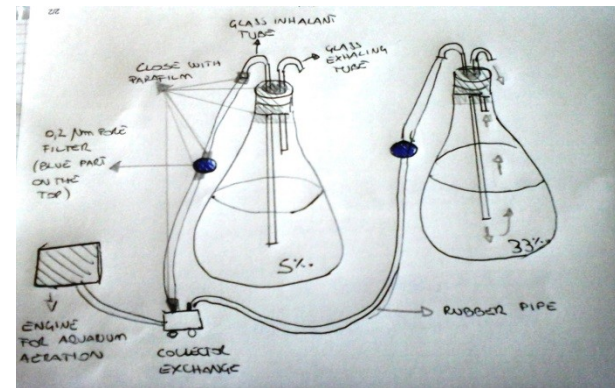 GLASS INHALANT
TUBE
GLASS
EXHALING
TUBE
CLOSE WITH
PARAFILM
0,2 µm PORE
FILTER
(BLUE PART
ON THE
TOP)
5‰
33‰
ENGINE
FOR AQUARIUM
AERATION
COLLECTOR
EXCHANGE
RUBBER PIPE